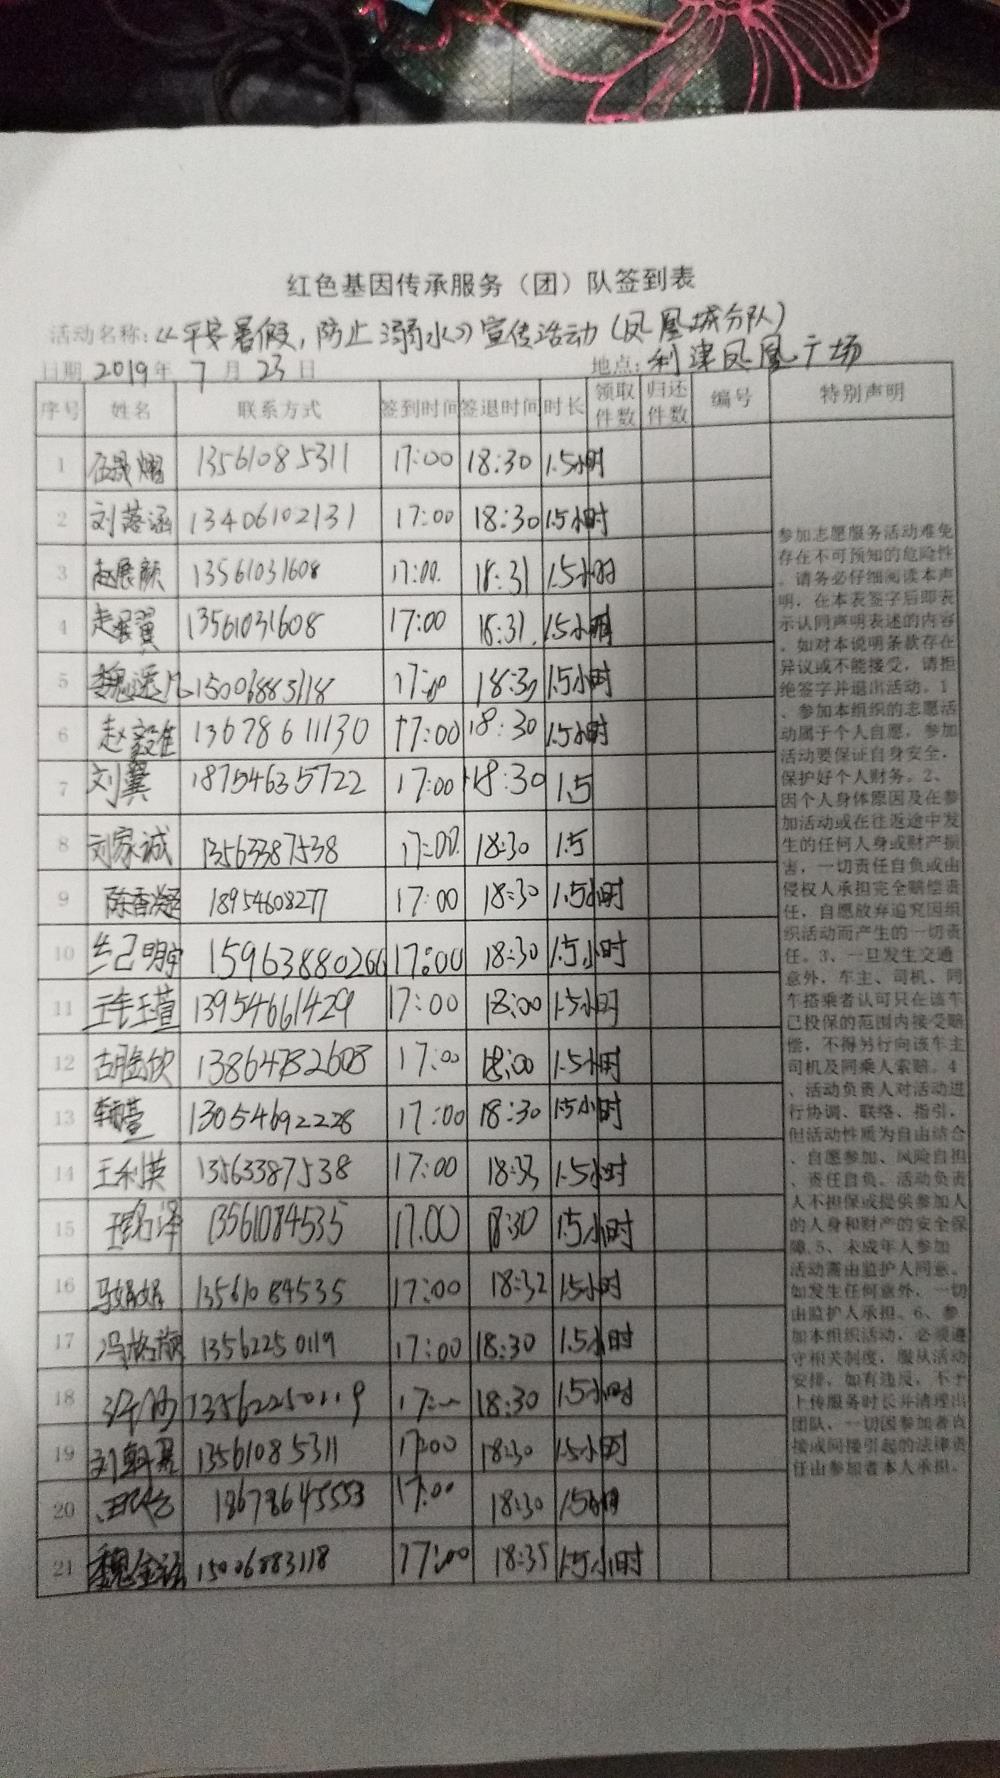 红色基因传承服务（团）队签到表
活动名称：《平安暑假，防止溺水》宣传活动（凤凰城分队）
日期 2019年 7 月 23 日 地点：利津凤凰广场
序号 姓名 联系方式 签到时间 签退时间 时长 领取件数 归还件数 编号 特别声明
1 13561085311 17:00 18:30 1.5小时
2 刘蕊涵 13406102131 17:00 18:30 1.5小时
3 赵展颜 13561031608 17:00 18:31 1.5小时
4 赵展翼 13561031608 17:00 18:31 1.5小时
5 15006883118 17:00 18:30 1.5小时
6 赵毅佳 13678611130 17:00 18:30 1.5小时
7 刘翼 18754635722 17:00 18:30 1.5
8 刘家诚 13563387538 17:00 18:30 1.5
9 陈香凝 18954608277 17:00 18:30 1.5小时
10 15963880266 17:00 18:30 1.5小时
11 13954661429 17:00 18:00 1.5小时
12 胡金欣 13864782608 17:00 18:00 1.5小时
13 13054692228 17:00 18:30 1.5小时
14 王利英 13563387538 17:00 18:33 1.5小时
15 13561084535 17.00 18:30 1.5小时
16 马娟娟 13561084535 17:00 18:32 1.5小时
17 13562250119 17:00 18:30 1.5小时
18 13562250119 17:00 18:30 1.5小时
19 13561085311 17:00 18:30 1.5小时
20 18678645553 17:00 18:30 1.5小时
21 15006883118 17:00 18:35 1.5小时
参加志愿服务活动难免
存在不可预知的危险性
，请务必仔细阅读本声
明，在本表签字后即表
示认同声明表述的内容
，如对本说明条款存在
异议或不能接受，请拒
绝签字并退出活动。1
、参加本组织的志愿活
动属于个人自愿，参加
活动要保证自身安全，
保护好个人财务。2、
因个人身体原因及在参
加活动或在往返途中发
生的任何人身或财产损
害，一切责任自负或由
侵权人承担完全赔偿责
任，自愿放弃追究因组
织活动而产生的一切责
任。3、一旦发生交通
意外，车主、司机、同
车搭乘者认可只在该车
已投保的范围内接受赔
偿，不得另行向该车主
司机及同乘人索赔。4
、活动负责人对活动进
行协调、联络、指引，
但活动性质为自由结合
、自愿参加、风险自担
、责任自负。活动负责
人不担保或提供参加人
的人身和财产的安全保
障。5、未成年人参加
活动需由监护人同意。
如发生任何意外，一切
由监护人承担。6、参
加本组织活动，必须遵
守相关制度，服从活动
安排，如有违反，不予
上传服务时长并清理出
团队，一切因参加者直
接或间接引起的法律责
任由参加者本人承担。